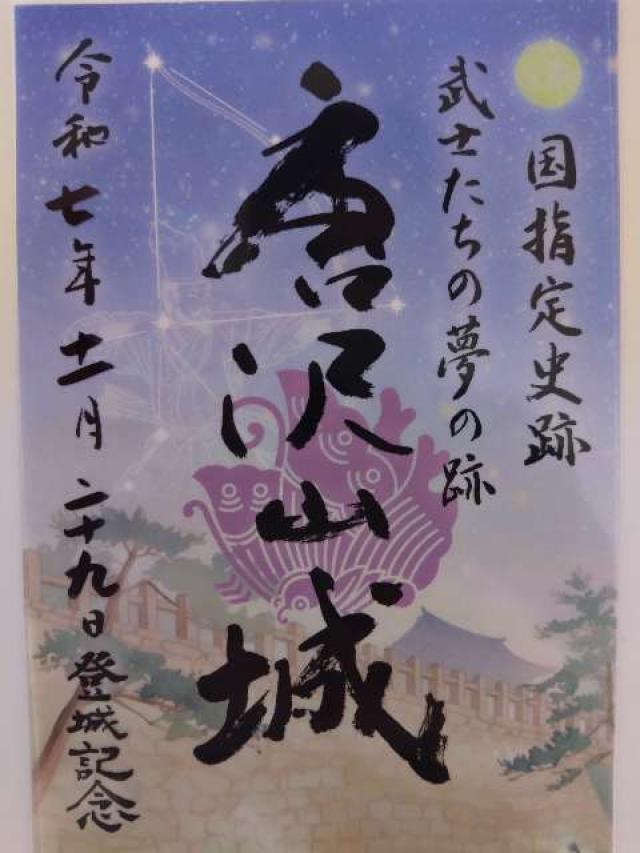 国指定史跡
武士たちの夢の跡
唐沢山城
令和七年十一月二十九日登城記念